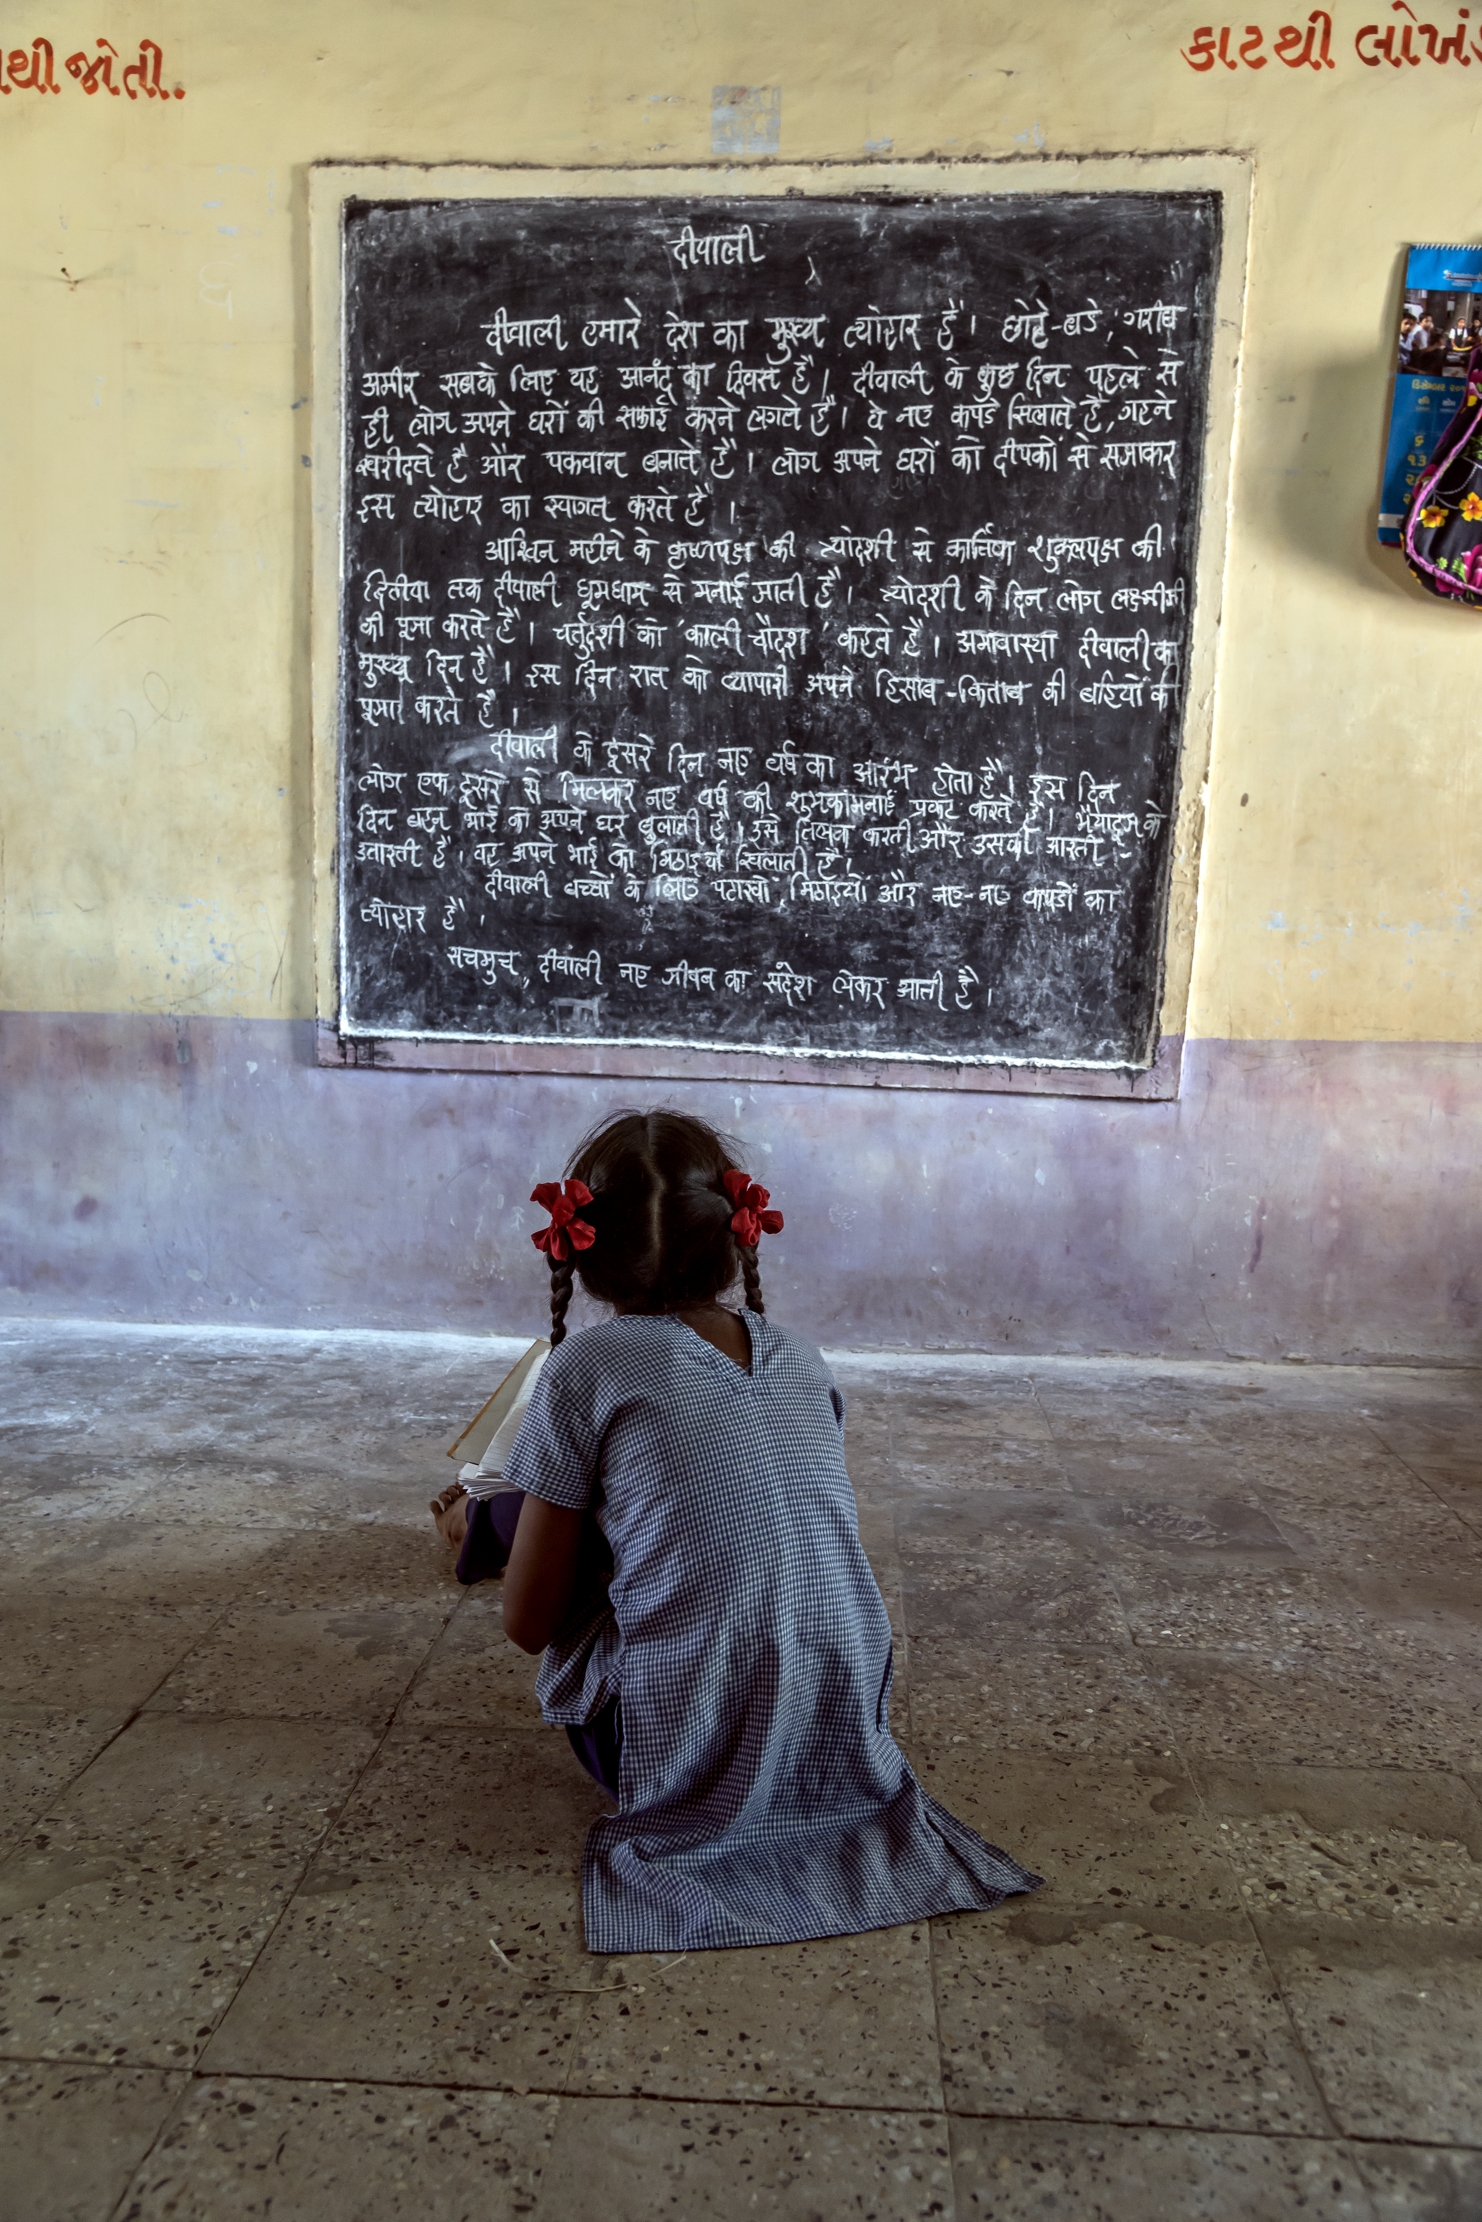 થી જોતી.
કાટથી લોખં
दीवाली
दीवाली हमारे देश का मुख्य त्योहार है। छोटे-बडे, गरीब
अमीर सबके लिए यह आनंद का दिवस है। दीवाली के कुछ दिन पहले से
ही लोग अपने घरों की सफाई करने लगते है। वे नए कपडे सिलाते है, गहने
खरीदते है और पकवान बनाते है। लोग अपने घरों को दीपकों से सजाकर
इस त्योहार का स्वागत करते है।
आश्विन महीने के कृष्णपक्ष की त्र्योदशी से कार्तिक शुक्लपक्ष की
द्वितीया तक दीवाली धूमधाम से मनाई जाती है। त्र्योदशी के दिन लोग लक्ष्मीजी
की पूजा करते है। चर्तुदशी को 'काली चौदश' कहते है। अमावास्या दीवाली का
मुख्य दिन है। इस दिन रात को व्यापारी अपने हिसाब-किताब की बहियों की
पूजा करते है।
दीवाली के दूसरे दिन नए वर्ष का आरंभ होता है। इस दिन
लोग एक दूसरे से मिलकर नए वर्ष की शुभकामनाएँ प्रकट करते है। भैयादूज के
दिन बहन भाई को अपने घर बुलाती है। उसे तिलक करती और उसकी आरती
उतारती है। वह अपने भाई को मिठाइयाँ खिलाती है।
दीवाली बच्चों के लिए पटाखों, मिठाइयों और नए-नए कपडों का
त्योहार है।
सचमुच, दीवाली नए जीवन का संदेश लेकर आती है।